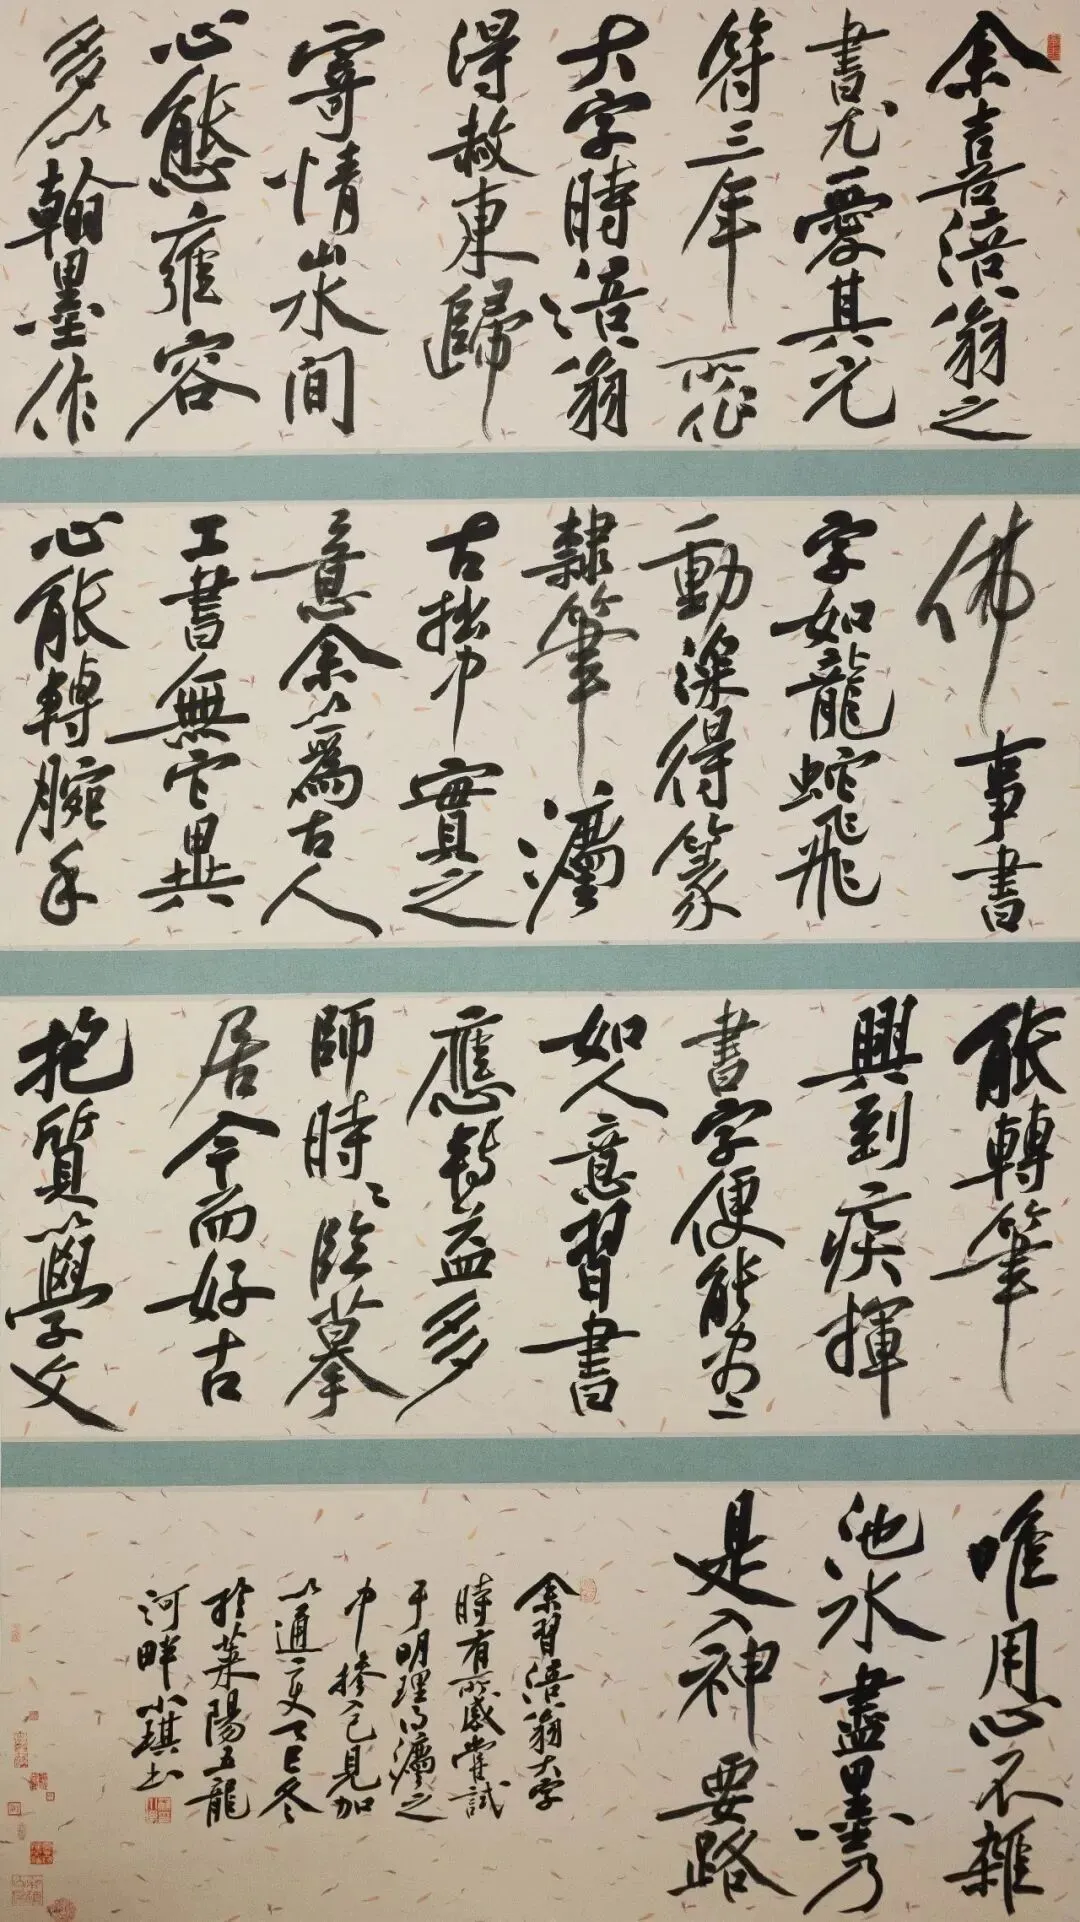 余喜涪翁之
書尤愛其元
符三年所作
大字時涪翁
得赦東歸
寄情山水間
心態雍容
多以翰墨作
佛事書
字如龍蛇飛
動深得篆
隸筆灋
古拙中實之
意余以為古人
工書無它異
心能轉腕手
能轉筆
興到疾揮
書字便能盡
如人意習書
應轉益多
師時時臨摹
居今而好古
抱質以學文
唯用心不雜
池水盡墨乃
是入神要路
余習涪翁大字
時有所感嘗試
于明理得灋之
中摻入己見加
以通变乙巳冬
於萊陽五龍
河畔小琪书